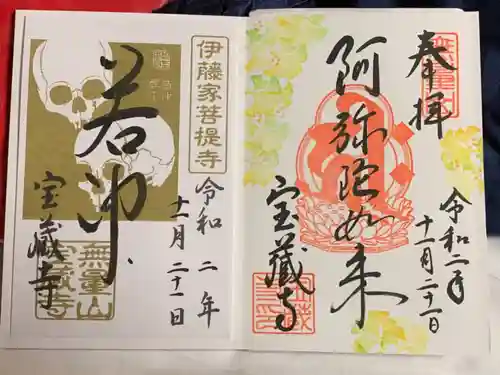 奉拝
無量山
阿弥陀如来
宝蔵寺
令和二年
十一月二十一日
伊藤家菩提寺
若冲
令和二年
十一月二十一日
宝蔵寺
無量山
宝蔵寺